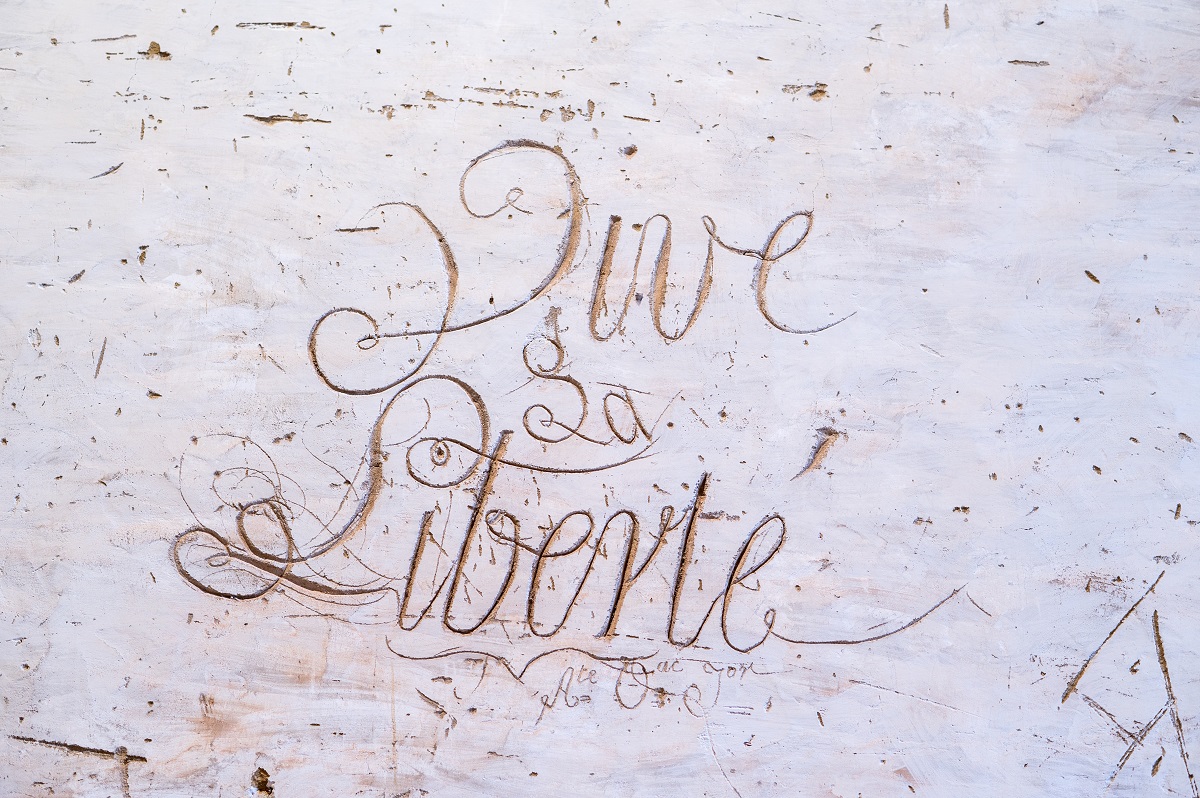 Vive
La
Liberté